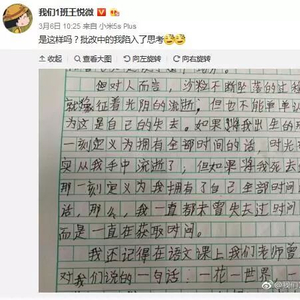 我们1班王悦微
3月6日 10:25 来自 小米5s Plus
是这样吗？批改中的我陷入了思考
收起
查看大图
向左旋转
向右旋转
但对人而言，沙粒不断坠落的过程
就象征着光阴的流逝，但也不能单单
为这是自己的失去。如果将我出生的
一刻定义为拥有全部时间的话，时光
实从我手中流逝了，但如果将我死去
那一刻定义为我拥有了自己全部时间
话，那么，我一直都未曾失去过时间
而是一直在获取时间。
我还记得在语文课上我们老师曾
对我们说的一句话：一花一世界，一